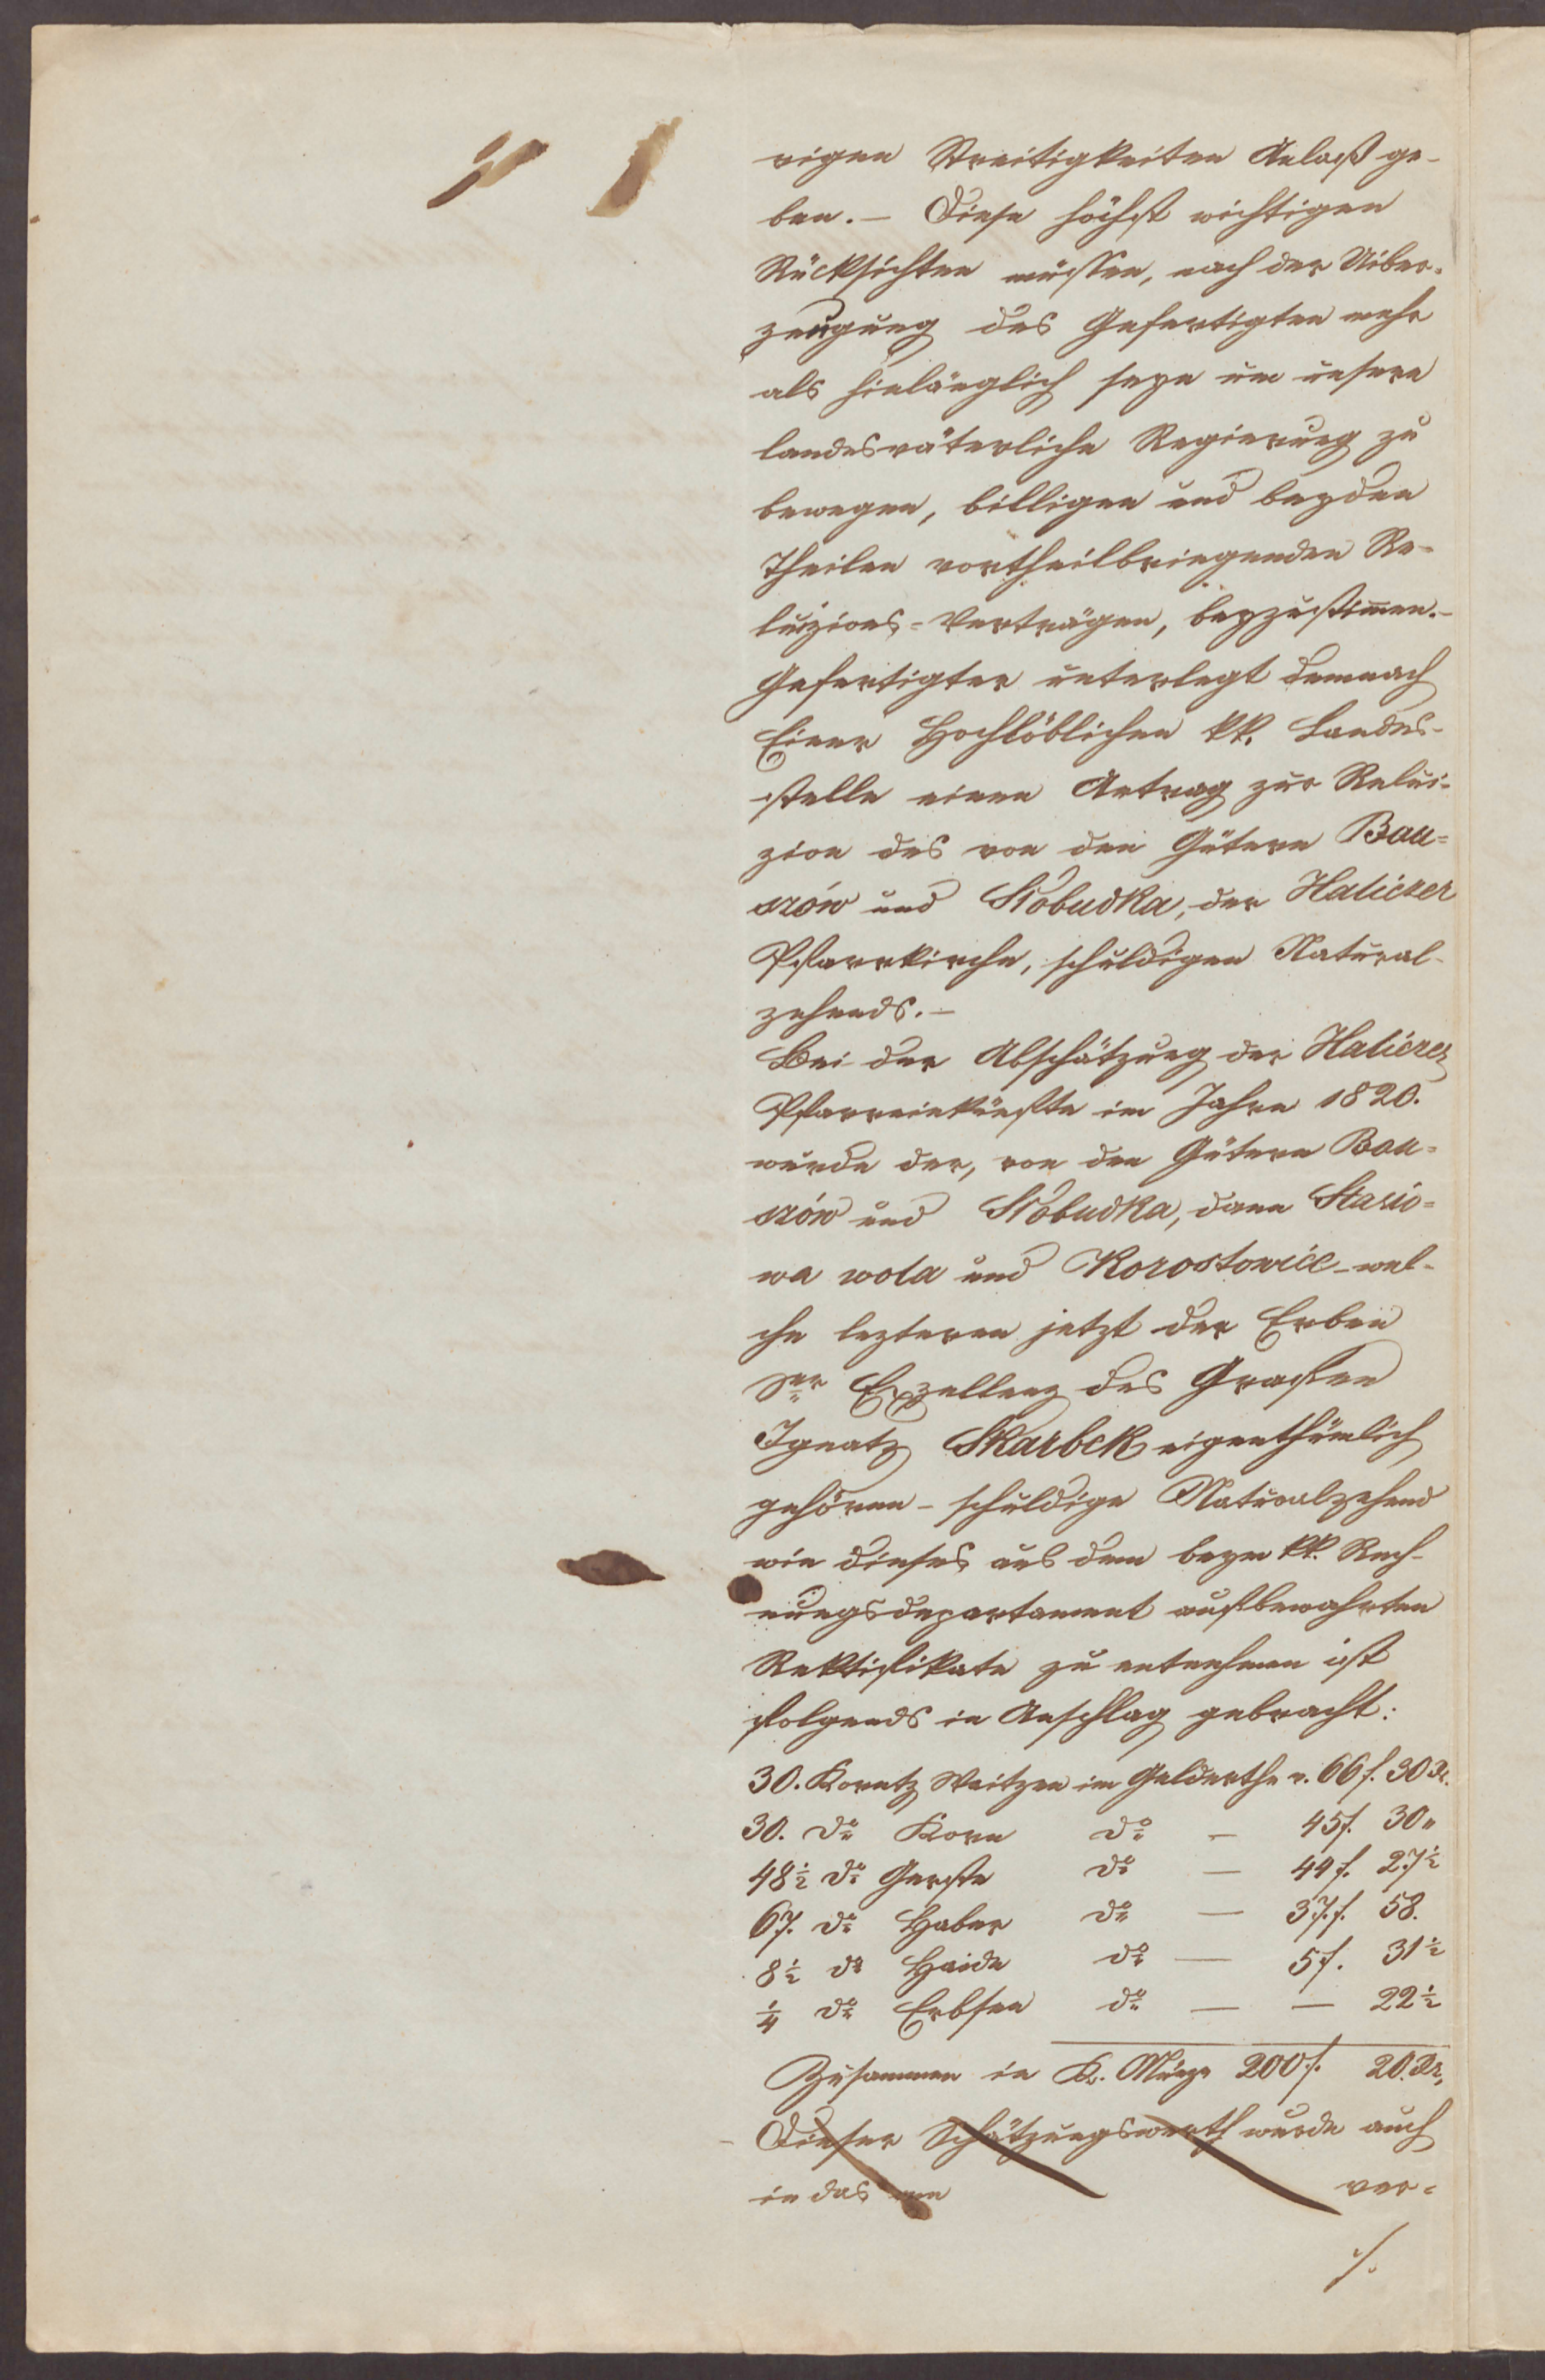 rigen Streitigkeiten Anlaß ge-
ben. – Diese höchst wichtigen
Rücksichten müssen, nach der Uiber-
zeugung des Gefertigten mehr
als hinlänglich seyn um unsere
landesväterliche Regierung zu
bewegen, billigen und beyden
Theilen vortheilbringenden Re-
luizions-Verträgen, beyzustimmen. –
Gefertigter unterlegt demnach
Einer Hochlöblichen kk. Landes-
stelle einen Antrag zur Relui-
zion des von den Gütern Bou-
szów und Słobudka, der Haliczer
Pfarrkirche, schuldigen Natural-
zehends. –
Bei der Abschätzung der Haliczer
Pfarreinkünfte im Jahre 1820.
wurde der, von den Gütern Bou-
szów und Słobudka, dann Stasio-
wa wola und Korostowice – wel-
che lezteren jetzt der Erben
Ser Exzellenz des Grafen
Ignatz Skarbek eigenthümlich
gehören – schuldige Naturalzehend
wie dieses aus dem beym kk. Rech-
nungsdepartament aufbewahrten
Rektifikate zu entnehmen ist
folgends in Anschlag gebracht:
30. Koretz Weitzen im Geldwerthe v. 66 f. 30 Xr.
30. do Korn do – 45 f. 30 "
48 1/2 do Gerste do – 44 f. 27 1/2
67. do Haber do – 37 f. 58.
8 1/2 do Haide do – 5 f. 31 1/2
1/4 do Erbsen do – – 22 1/2
Zusammen in K. Münze 200 f. 20. Xr,
Dieser Schätzungswerth wurde auch
in das vom ver-
./.